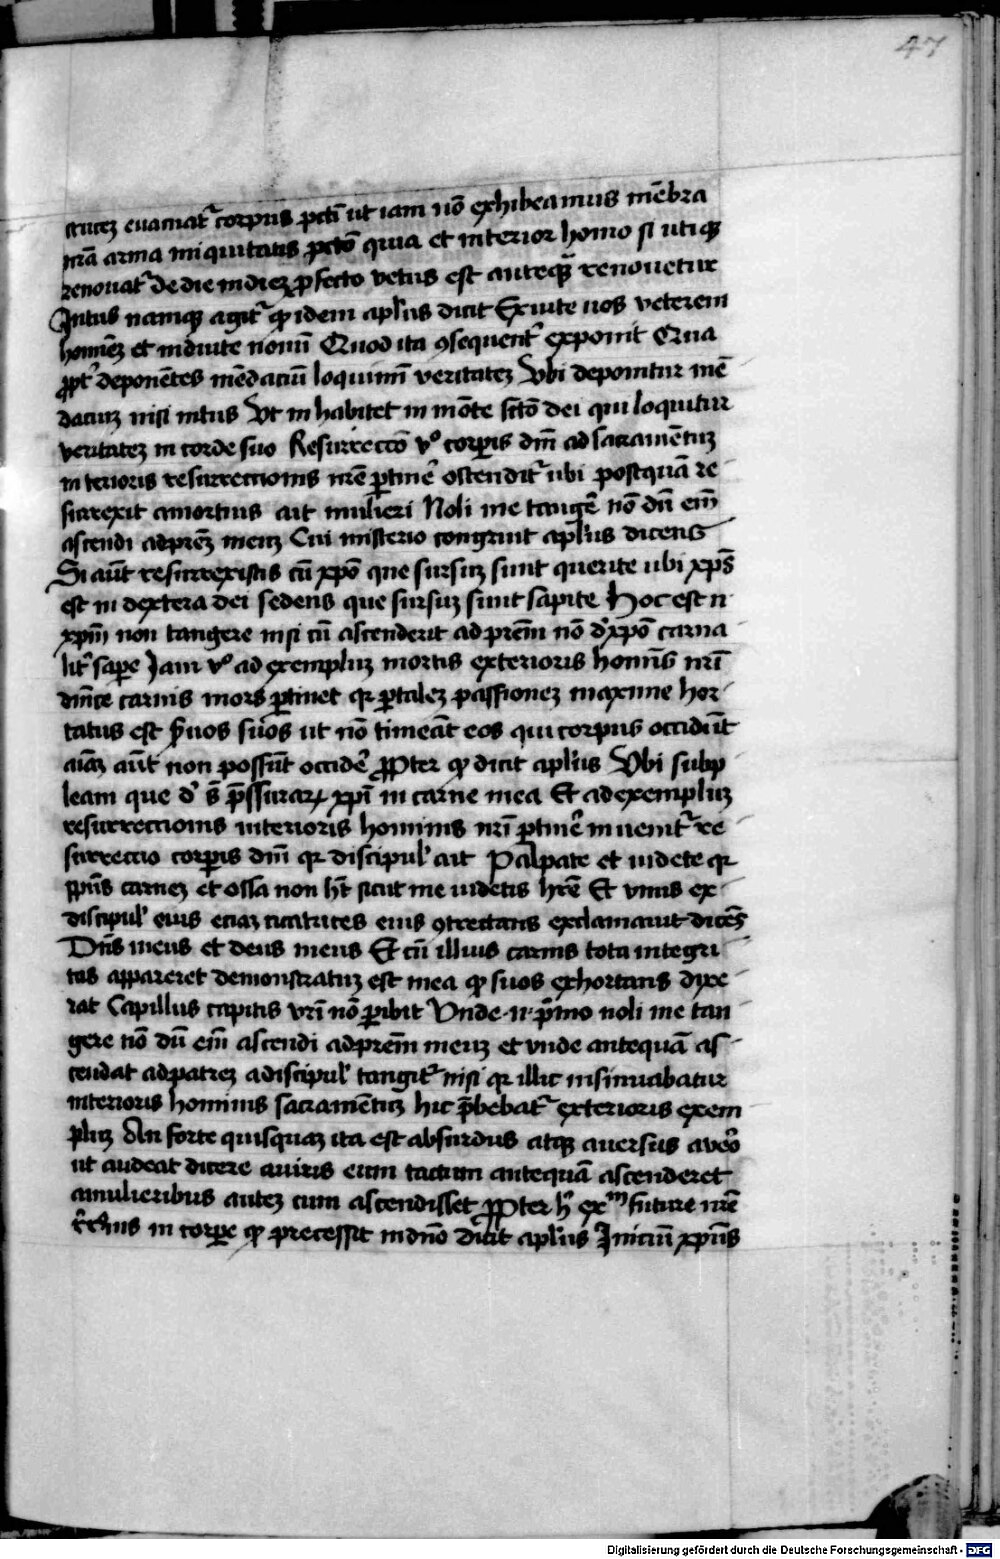 47
crucez euacuat᷑ corpus pcti ut iam nō exhibeamus mēbra
nrā arma iniquitatis pcto᷑ quia et interior homo si utiqꝫ
renouat᷑ de die in diez ꝓfecto vetus est anteqᷓ renouetur
Intus namqꝫ agit᷑ qđ idem apl̄us dicit Exuite uos veterem
hominēz et induite nouū Quod ita ꝯsequent᷑ exponit Qua
ꝓpt᷑ deponētes mēdaciū loquimī veritatez Vbi deponitur mē
daciuz nisi intus Vt inhabitet in mōte scō dei qui loquitur
veritatez in corde suo Resurreccō vᵒ corꝑis dnī ad sacramētuz
interioris resurrectionis nrē ꝑtinē᷑ ostendit᷑ ubi postquā re
surrexit a mortuis ait mulieri Noli me tangē᷑ nō dū em̄
ascendi ad prēz meuz Cui misterio congruit apl̄us dicens
Si aūt resurrexistis cū xpō que sursuz sunt querite ubi xps̄
est in dextera dei sedens que sursuz sunt sapite Hoc est n
xpm̄ non tangere nisi cū ascenderit ad prēm nō d᷑ xpō carna
lit᷑ saꝑe Jam vᵒ ad exempluz mortis exterioris hominis nrī
dnīce carnis mors ꝑtinet qꝛ ꝑ talez passionez maxime hor
tatus est ẜuos suos ut nō timeāt eos qui corpus occidūt
aīaz aūt non possūt occidē᷑ ꝓpter qđ dicit apl̄us Vbi supp
leam que d᷑ s̄ p̄ssuraꝝ xpī in carne mea Et ad exempluz
resurrectionis interioris hominis nrī ꝑtinē᷑ inuenit᷑ re
surreccio corꝑis dnī qꝛ discipul᷑ ait Palpate et uidete qꝛ
sp̄us carnez et ossa non hn̄t sicut me uidetis hr̄e Et vnus ex
discipul᷑ eius etiaz cicatrices eius ꝯtrectans exclamauit dicēs
Dn̄s meus et deus meus Et cū illius carnis tota integri
tas appareret demonstratuz est in ea qđ suos exhortans dixe
rat Capillus capitis vrī nō ꝑibit Vnde n p̄mo noli me tan
gere nō dū em̄ ascendi ad prēm meuz et vnde antequā as
cendat ad patrez a discipul᷑ tangit᷑ nisi qꝛ illic insinuabatur
interioris hominis sacramētuz hic p̄bebat᷑ exterioris exem
pluz An forte quisquaz ita est absurdus atqꝫ auersus a vēo
ut audeat dicere a uiris eum tactum antequā ascenderet
a mulieribus autez cum ascendisset ꝓpter h᷑ exᵐ future nrē
in corꝑe qđ precessit in dnō dicit apl̄us Iniciū xp̄us
Digitalisierung gefördert durch die Deutsche Forschungsgemeinschaft - DFG